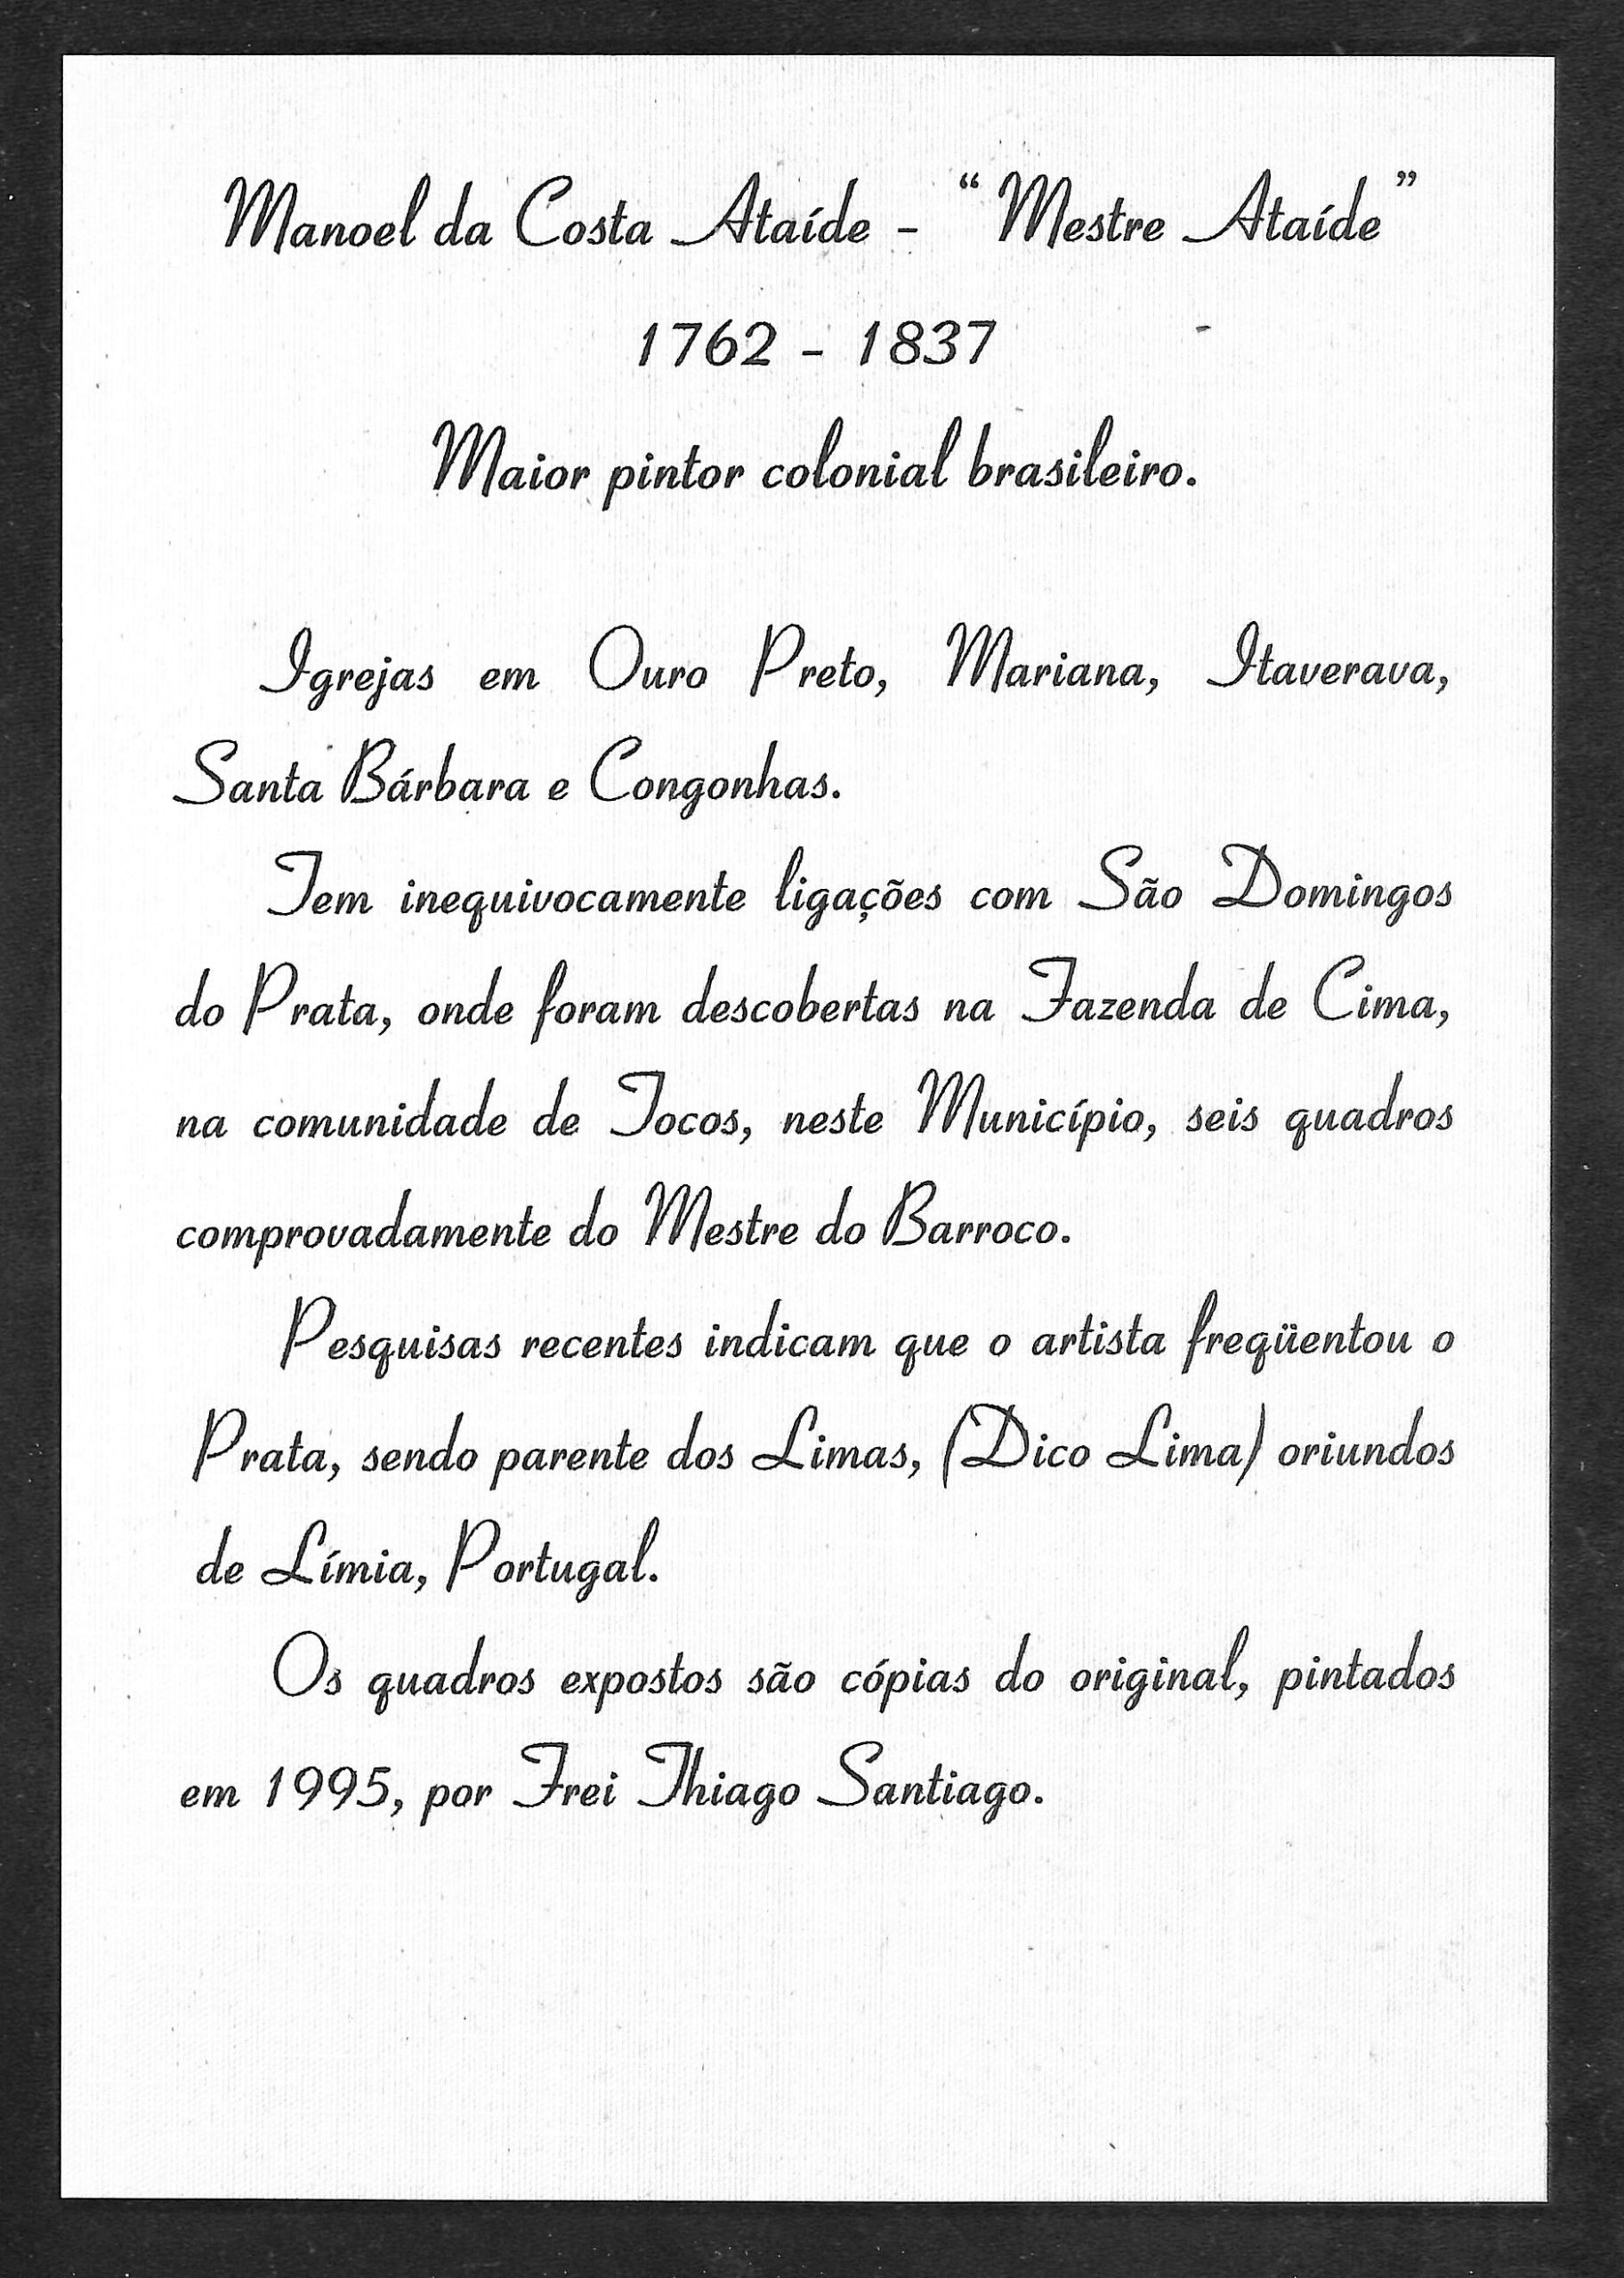 Manoel da Costa Ataíde - “Mestre Ataíde”
1762 - 1837
Maior pintor colonial brasileiro.
Igrejas em Ouro Preto, Mariana, Itaverava,
Santa Bárbara e Congonhas.
Tem inequivocamente ligações com São Domingos
do Prata, onde foram descobertas na Fazenda de Cima,
na comunidade de Tocos, neste Município, seis quadros
comprovadamente do Mestre do Barroco.
Pesquisas recentes indicam que o artista freqüentou o
Prata, sendo parente dos Limas, (Dico Lima) oriundos
de Límia, Portugal.
Os quadros expostos são cópias do original, pintados
em 1995, por Frei Thiago Santiago.